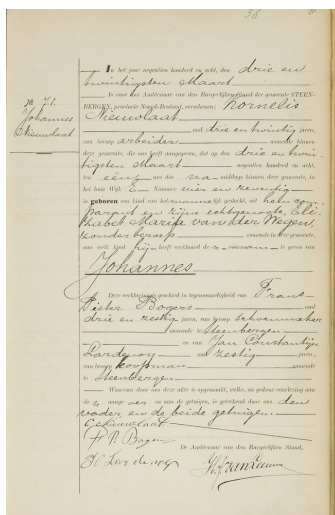 36
No 71.
Johannes
Nieuwlaat
In het jaar negentien honderd en acht, den drie en
twintigsten Maart
is voor ons Ambtenaar van den Burgerlijken Stand der gemeente STEEN-
BERGEN, provincie Noord-Brabant, verschenen: Kornelis
Nieuwlaat
oud drie en twintig jaren,
van beroep arbeider wonende binnen
deze gemeente, die ons heeft aangegeven, dat op den drie en twin
tigsten Maart negentien honderd en acht,
ten één ure des na middags binnen deze gemeente, in
het huis Wijk E Nummer vier en zeventig
is geboren een kind van het mannelijk geslacht, uit hem com
parant en zijne echtgenoote Eli
zabet Maria van der Wegen
zonder beroep wonende in deze gemeente,
aan welk kind hij heeft verklaard de voornaam te geven van
Johannes
Deze verklaring is geschied in tegenwoordigheid van Frans
Pieter Bogers oud
drie en zestig jaren, van beroep schoenmaker
wonende te Steenbergen
en van Jan Constantijn
oud zestig jaren,
van beroep koopman wonende
te Steenbergen
Waarvan door ons deze akte is opgemaakt, welke, na gedane voorlezing aan
de aangever en aan de getuigen, is geteekend door ons, den
vader en de beide getuigen.
C Nieuwlaat
Fr P. Bogers
De Ambtenaar van den Burgerlijken Stand,